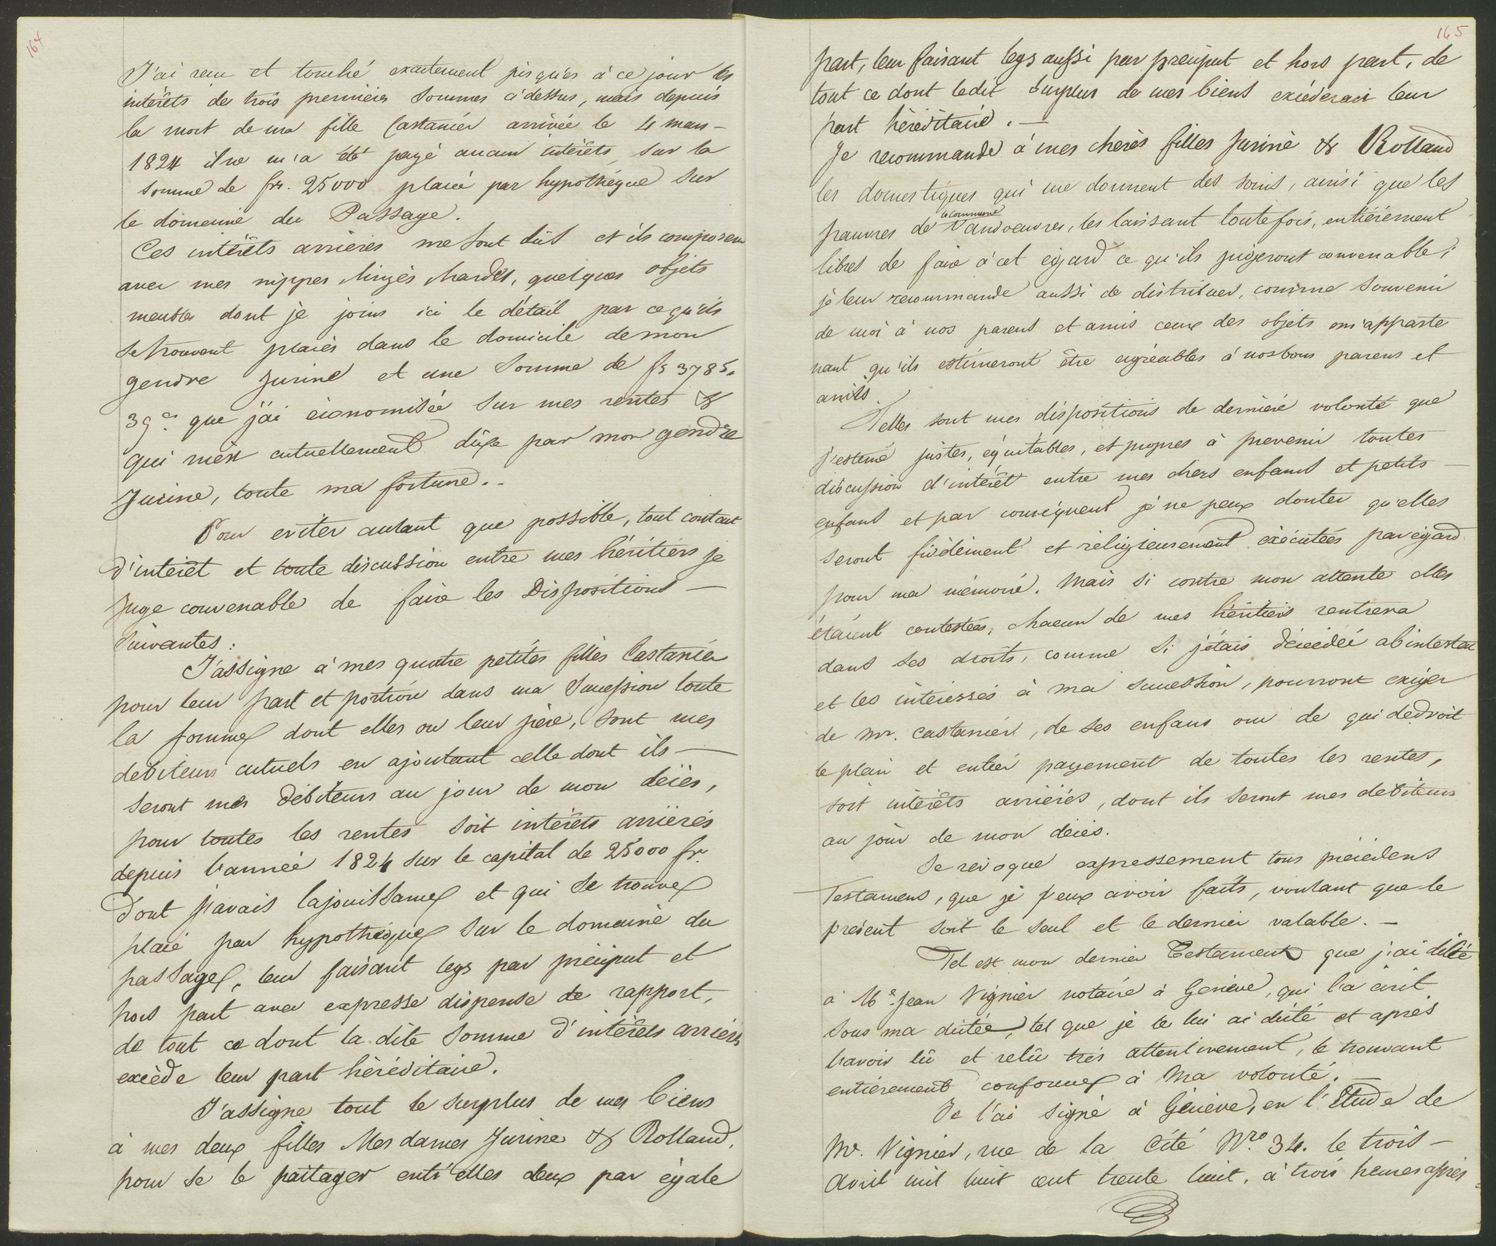 164
J'ai reçu et touché exactement jusques à ce jour les
intérêts de trois premières sommes ci dessus, mais depuis
la mort de ma fille Castanier arrivée le 4 mars –
1824 il ne m'a été payé aucun intérêts sur la
somme de frs. 25000 placée par hypothéque sur
le domaine du Passage.
Ces intérêts arriérés me sont dûs et ils composent
avec mes nippes linges hardes, quelques objets
meubles dont je joins ici le détail par ce qu'ils
se trouvent placés dans le domicile de mon
gendre Jurine et une somme de fs 3785.
39 cs que j'ai économisée sur mes rentes &
qui m'est actuellement düe par mon gendre
Jurine, toute ma fortune. –
Pour eviter autant que possible, tout contact
d'intérêt et toute discussion entre mes héritiers je
juge convenable de faire les Dispositions –
suivantes :
J'assigne à mes quatre petites filles Castanier
pour leur part et portion dans ma Succession toute
la somme dont elles ou leur père, sont mes
debiteurs actuels en ajoutant celle dont ils –
seront mes débiteurs au jour de mon décès,
pour toutes les rentes soit intérêts arriérés
depuis l'année 1824 sur le capital de 25000 fr.
dont j'avais la jouissance et qui se trouve
placé par hypothèque sur le domaine du
passage, leur faisant legs par préciput et
hors part avec expresse dispense de rapport,
de tout ce dont la dite somme d'intérêts arriérés
excède leur part héréditaire.
J'assigne tout le surplus de mes biens
à mes deux filles Mesdames Jurine & Rolland,
pour se le partager entr'elles deux par égale
165
part, leur faisant legs aussi par préciput et hors part, de
tout ce dont ledit surplus de mes biens excéderait leur
part héréditaire. –
Je recommande à mes chères filles Jurine & Rolland
les domestiques qui me donnent des soins, ainsi que les
pauvres de la commune Vandoeuvres, les laissant toutefois, entièrement
libres de faire à cet egard ce qu'ils jugeront convenable;
je leur recommande aussi de distribuer, comme souvenir
de moi à nos parens et amis ceux des objets m'apparte
nant qu'ils estimeront être agréables à nos bons parens et
amis.
Telles sont mes dispositions de dernière volonté que
j'estime justes, équitables, et propres à prevenir toutes
discussion d'intérêt entre mes chers enfants et petits –
enfans et par conséquent je ne peux douter qu'elles
seront fidèlement et religieusement exécutées par égard
pour ma mémoire. Mais si contre mon attente elles
étaient contestées, chacun de mes héritiers rentrera
dans ses droits, comme si j'étais décédée abintestat
et les intéressés à ma succession, pourront exiger
de Mr. Castanier, de ses enfans ou de qui de droit
le plein et entier payement de toutes les rentes,
soit intérêts arriérés, dont ils seront mes debiteurs
au jour de mon décès.
Je révoque expressement tous précédens
Testamens, que je peux avoir faits, voulant que le
présent soit le seul et le dernier valable. –
Tel est mon dernier Testament que j'ai dicté
à Me. Jean Vignier notaire à Genève, qui l'a écrit
sous ma dictée, tel que je le lui ai dicté et après
l'avoir lû et relû très attentivement, le trouvant
entièrement conforme à ma volonté. –
Je l'ai signé à Genève, en l'Etude de
Mr. Vignier, rue de la Cité Nro. 34. le trois –
Avril mil huit cent trente huit, à trois heures après